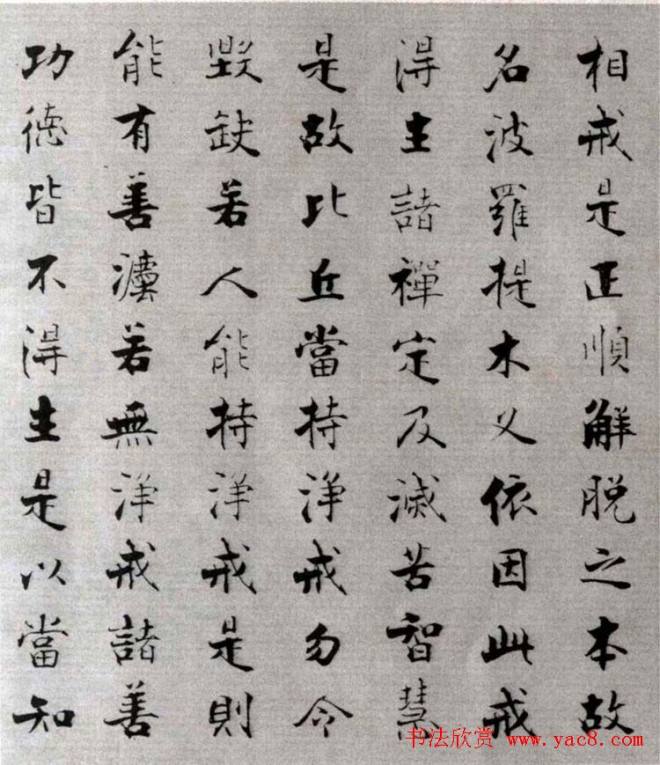 相戒是正順解脱之本故
名波羅提木义依因此戒
得生諸禪定及滅苦智慧
是故比丘當持淨戒勿令
毀缺若人能持淨戒是則
能有善灋若無淨戒諸善
功德皆不得生是以當知
书法欣赏 www.yac8.com